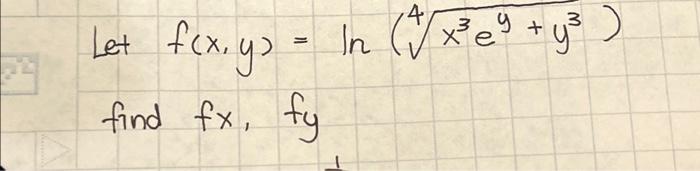 Let f(x,y) = ln (∜(x³e^y + y³))
find fx, fy